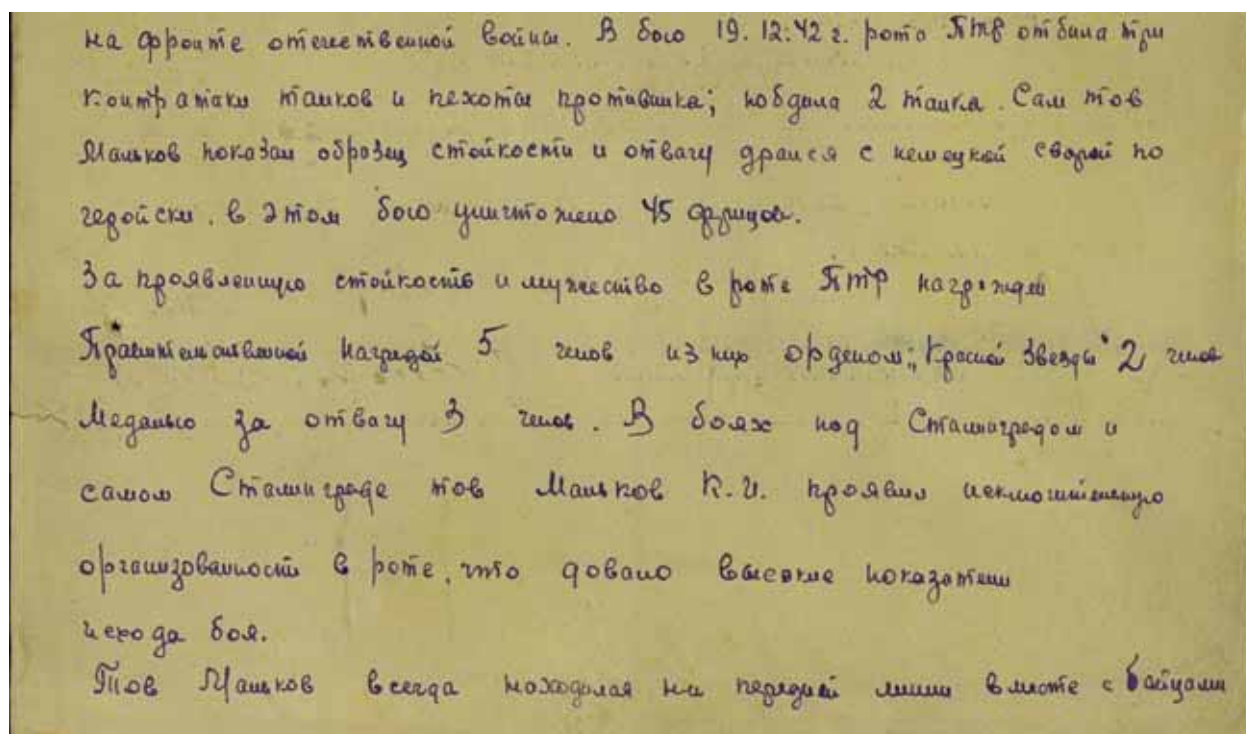 на фронте отечественной войны. В бою 19.12.42 г. рота ПТР отбила три
контратаки танков и пехоты противника; побдила 2 танка. Сам тов
Маньков показал образец стойкости и отвагу дрался с немецкой сворой по
геройски. в этом бою уничтожено 45 фрицов.
За проявленную стойкость и мужество в роте ПТР награжден
Правительственной наградой 5 челов из них орденом "Красной Звезды" 2 челов
Медалью за отвагу 3 челов. В боях под Сталинградом и
самом Сталинграде тов Маньков К.И. проявил исключительную
организованность в роте, что довало высокие показатели
исхода боя.
Тов Маньков всегда находился на передней линии вместе с байцами